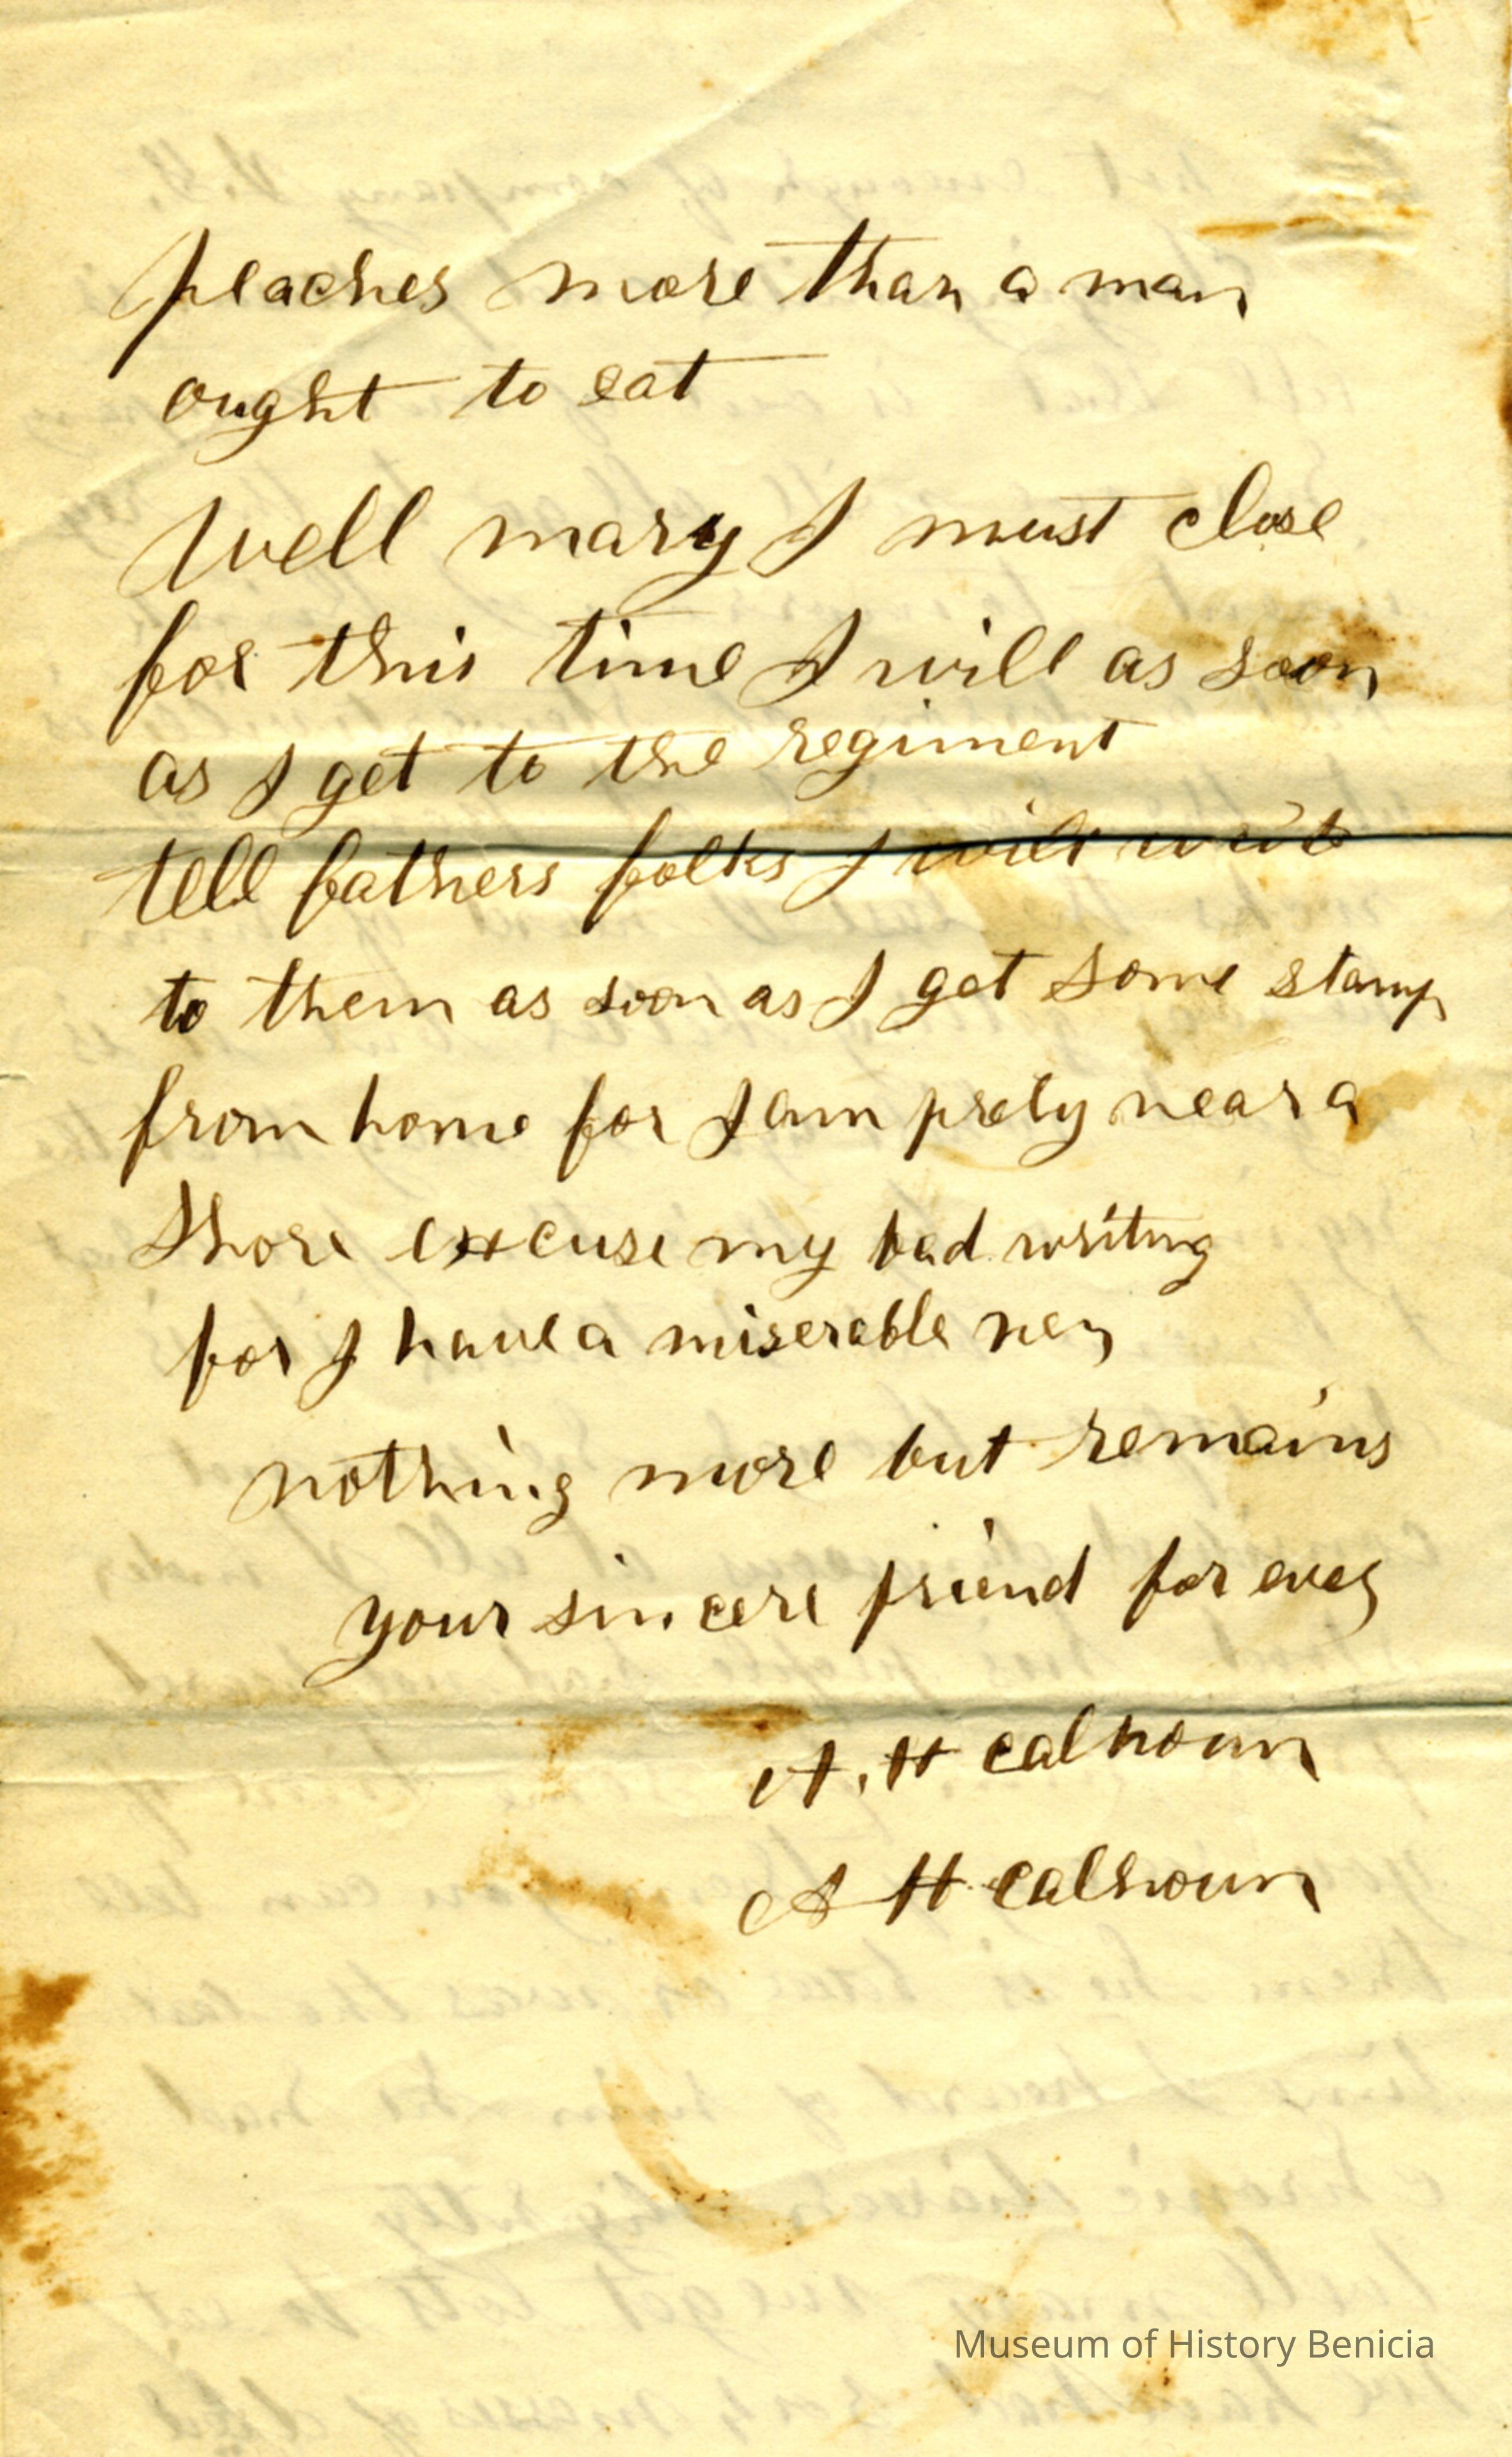 peaches more than a man
ought to eat
Well mary I must close
for this time I will as soon
as I get to the regiment
tell fathers folks I will
to them as soon as I get some stamp
from home for I am prety near a
shore excuse my bad writing
for I have a miserable
nothing more but remains
your sincere friend for ever
A. H calhoun
A H calhoun
Museum of History Benicia